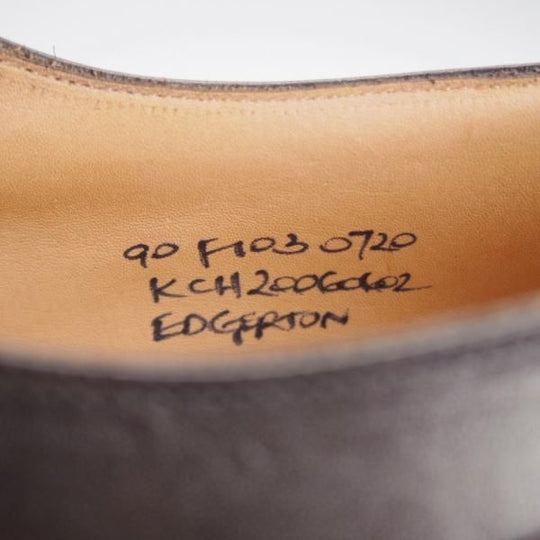 90 F103 0720
KCH20060602
EDGERTON